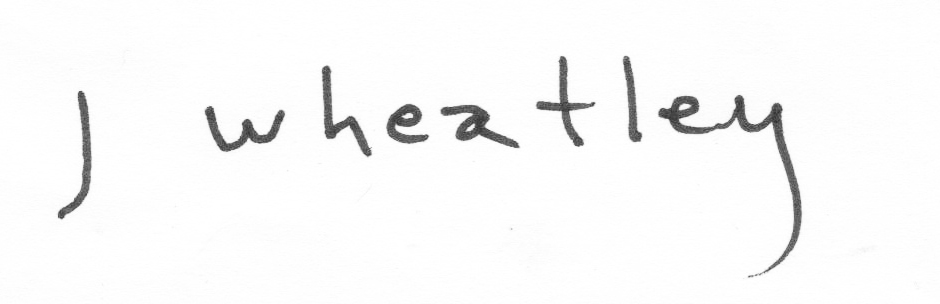 J wheatley